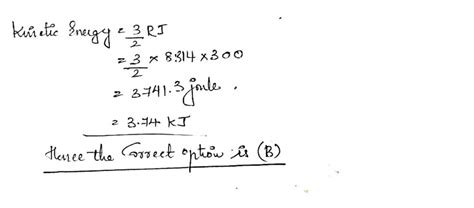 Kinetic Energy = 3/2 RT
= 3/2 × 8.314 × 300
= 3741.3 joule.
= 3.74 kJ
Hence the Correct option is (B)